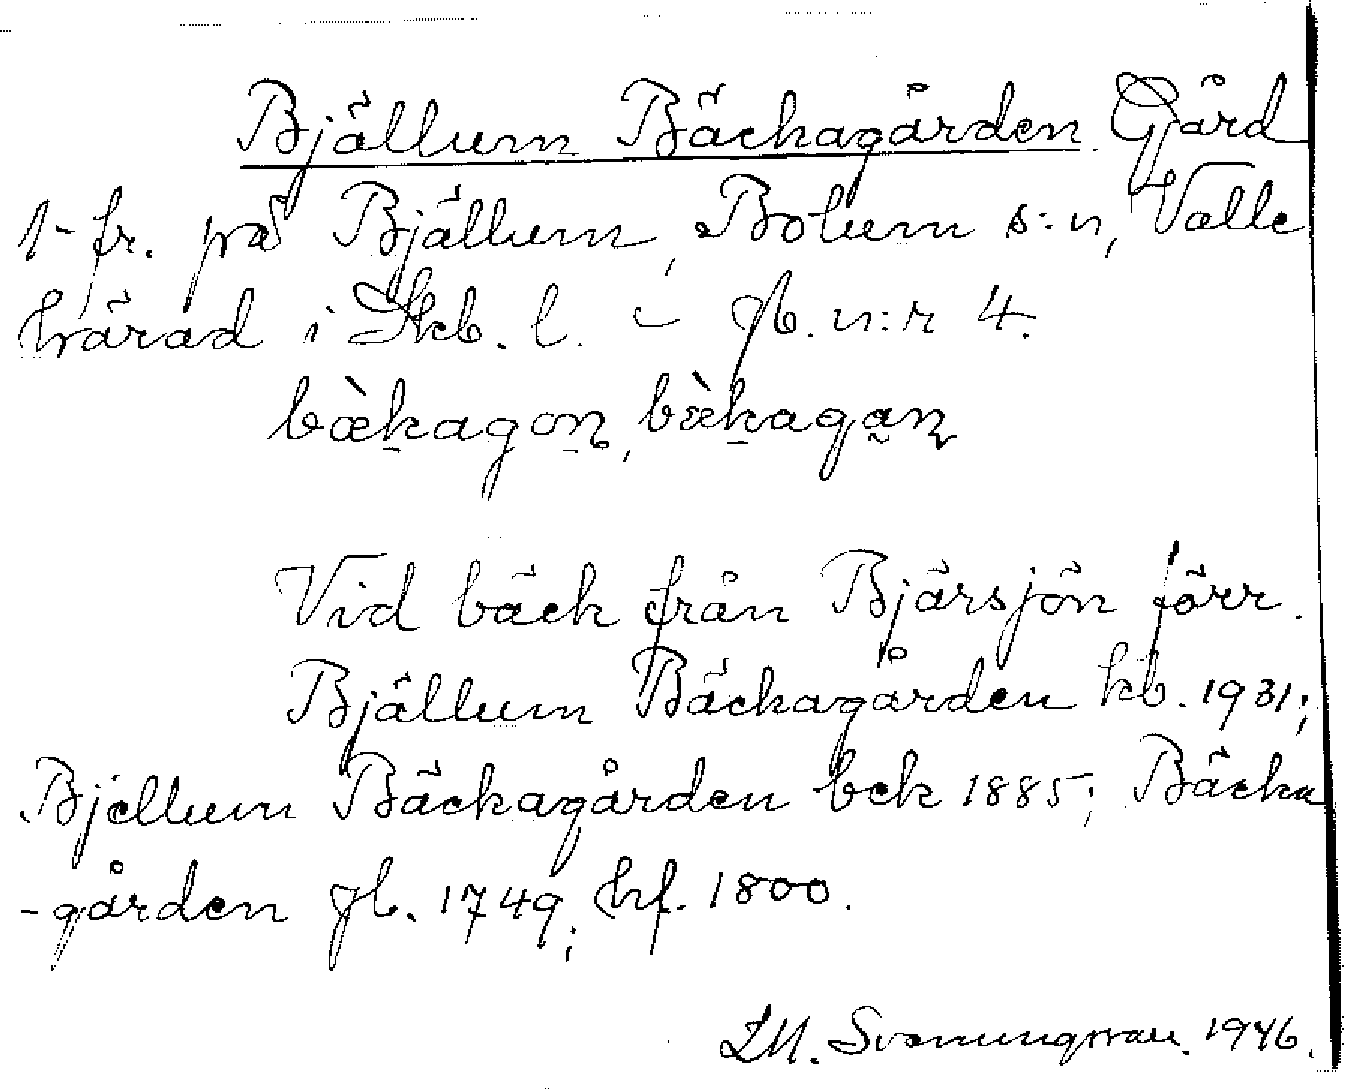 Bjällum Bäckagården Gård
1- fr. på Bjällum, Bolum s:n, Valle
härad i Skb. l. – jb. n:r 4.
bæ̀kagon, bæ̀kagan
Vid bäck från Bjärsjön förr.
Bjällum Bäckagården kb. 1931;
Bjellum Bäckagården bek 1885; Bäcka
-gården jb. 1749; hf. 1800.
Svanungsson. 1946.